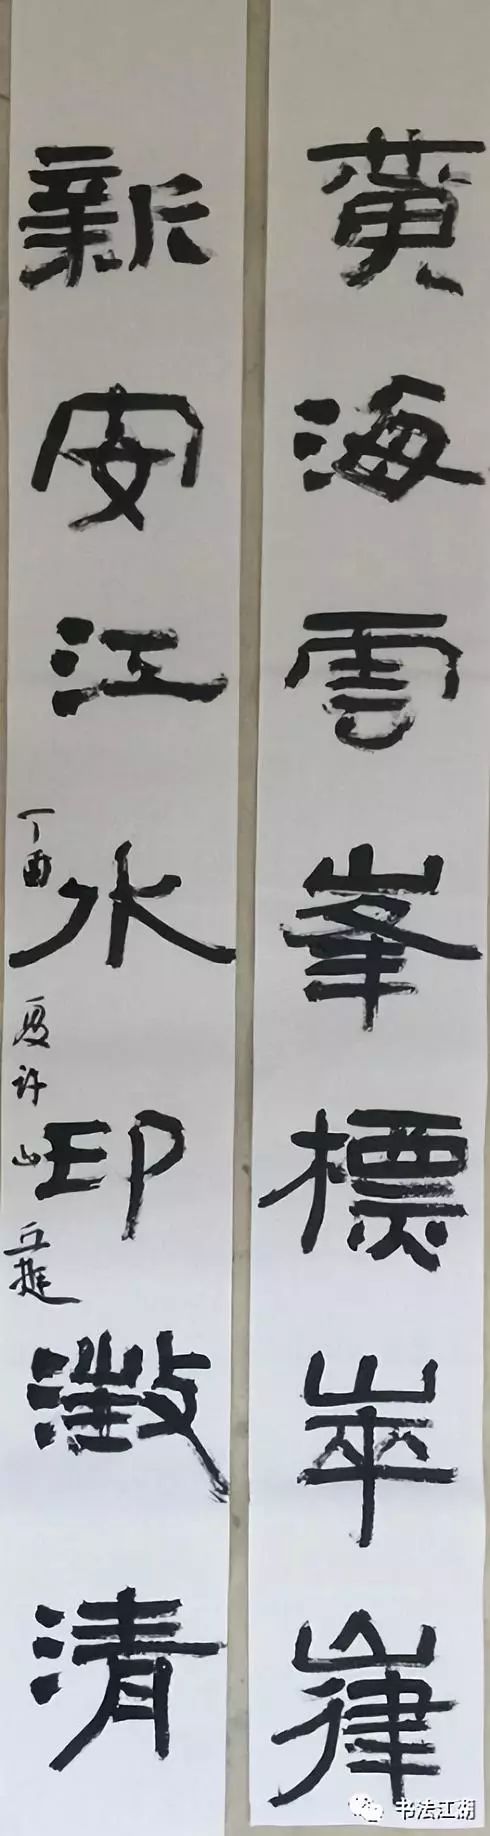 黄海雲峯標崒嵂
新安江水印澂清
丁酉夏许山丘題
书法江湖